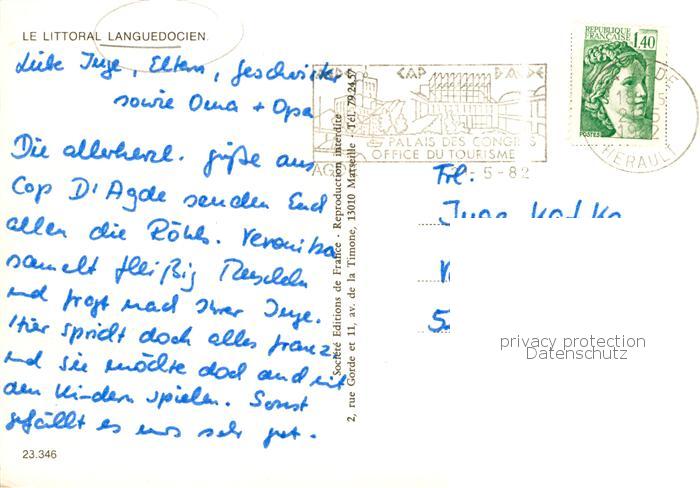 LE LITTORAL LANGUEDOCIEN.
Liebe Inge, Eltern, Geschwister
sowie Oma + Opa
Die allerherzl. Grüße aus
Cap D'Agde senden Euch
allen die Röhls. Veronika
sammelt fleißig Muscheln
und fragt nach Ihrer Inge.
Hier spricht doch alles franz.
und sie möchte doch auch mit
den Kindern spielen. Sonst
gefällt es uns sehr gut.
23.346
Société Editions de France - Reproduction interdite
2, rue Gorde et 11, av. de la Timone, 13010 Marseille - Tél. 79.24.57
CAP D'AGDE
PALAIS DES CONGRES
OFFICE DU TOURISME
-5-82
REPUBLIQUE
FRANÇAISE
1,40
POSTES
HERAULT
Frl.
Inge
5
privacy protection
Datenschutz